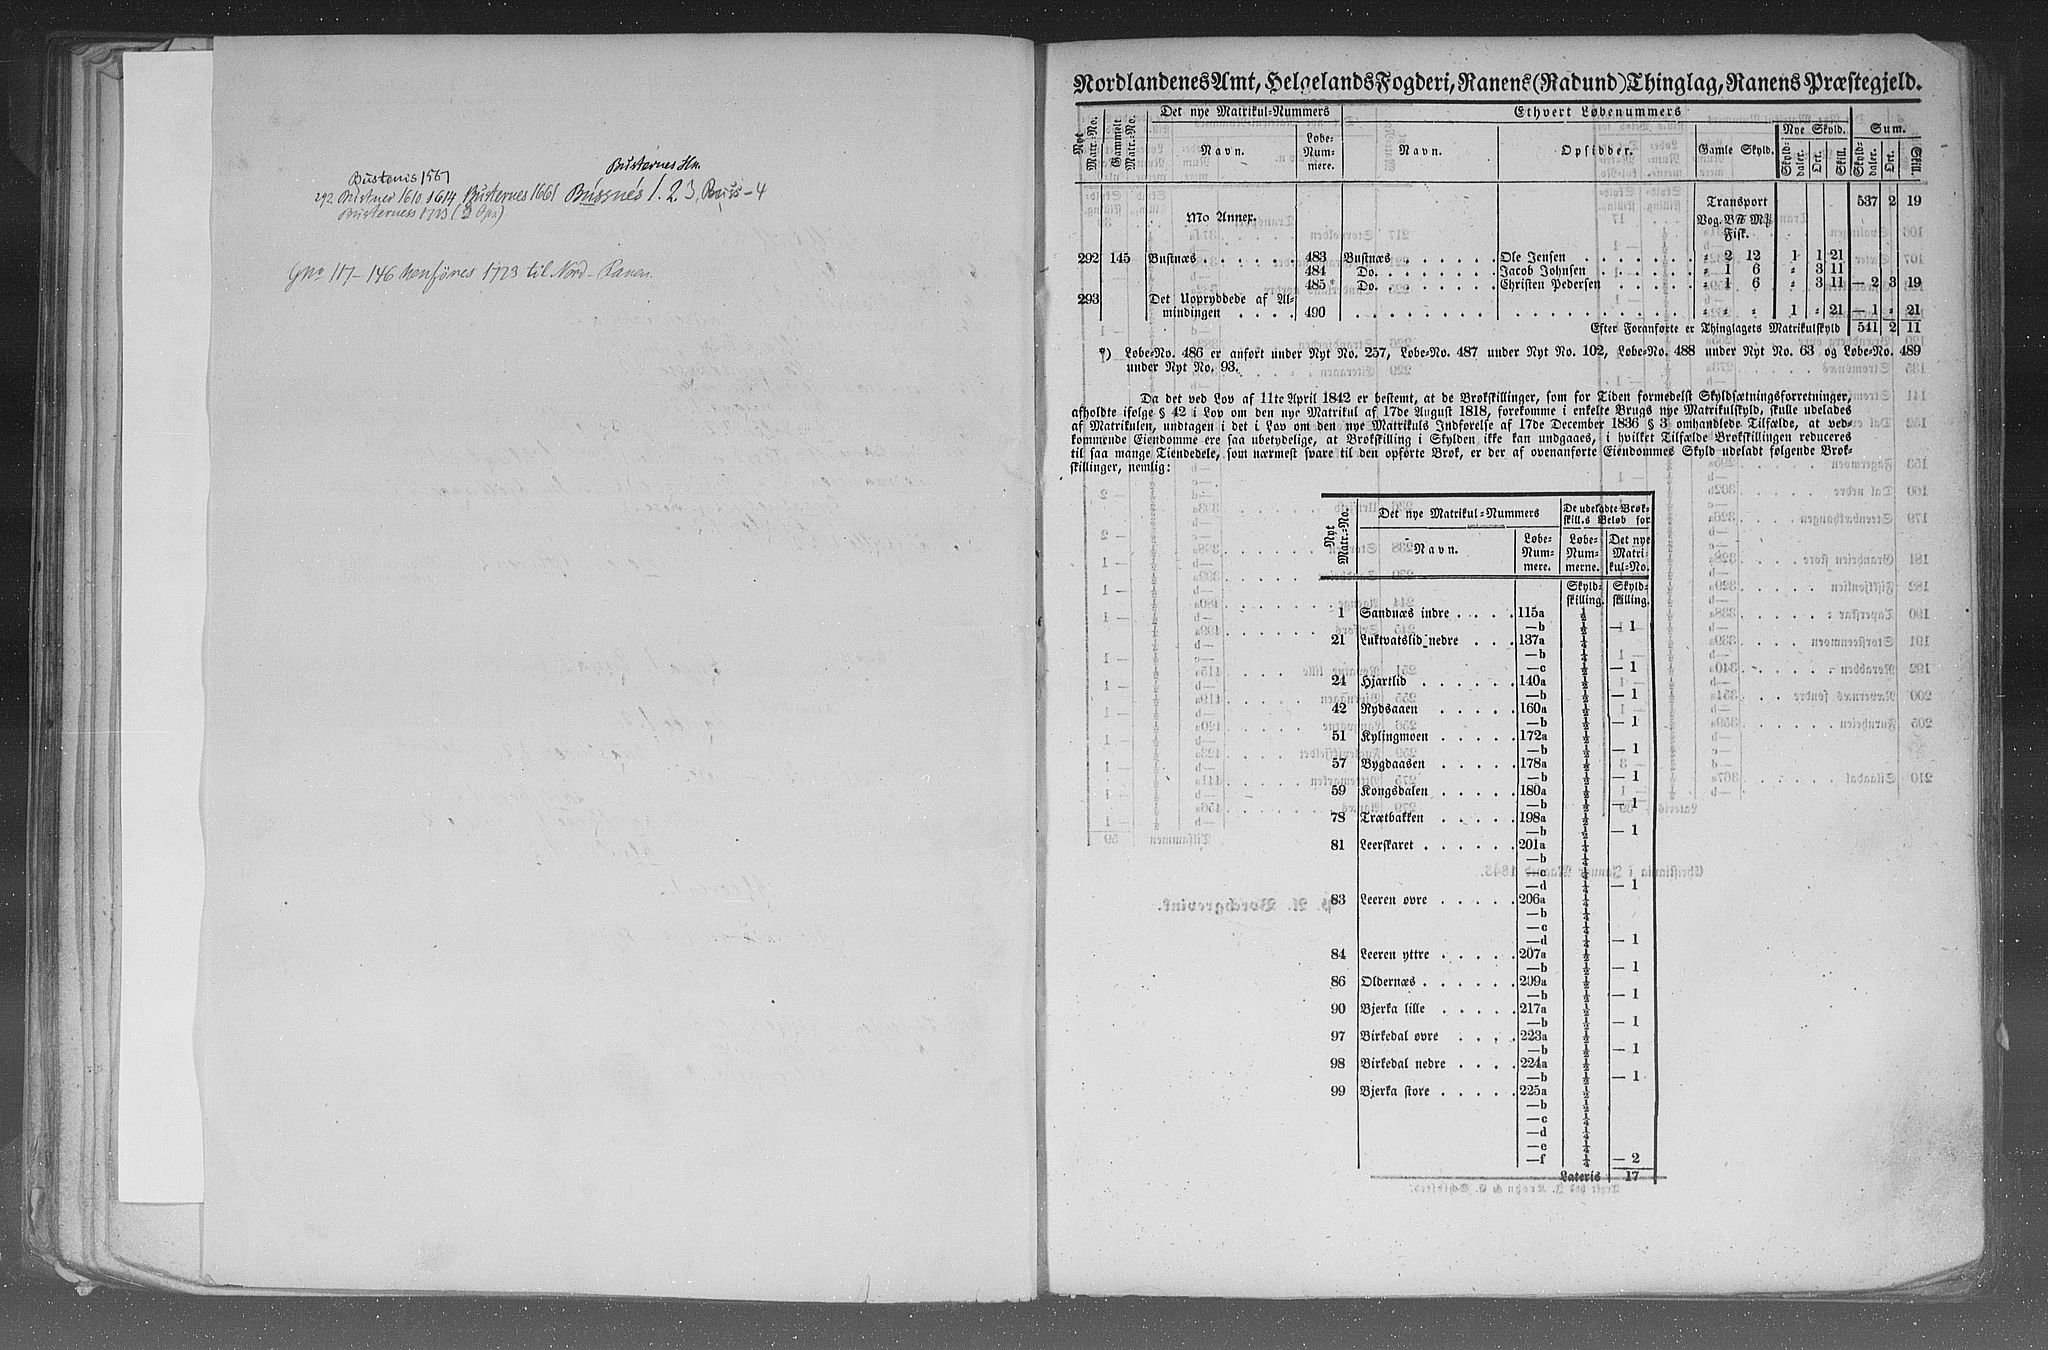 Busternes Hm.
Bustenis 1567
292 Bustner 1610 1614 Busternes 1661 Bussnes 1. 2 3, Buss - 4
Busterness 1723 (2 Ops)
Gno 117 - 146 henføres 1723 til Nord - Ranen.
Nordlandenes Amt, Helgelands Fogderi, Ranens (Radund) Thinglag, Ranens Præstegjeld.
Nyt Matr.-No. | Gammelt Matr.-No. | Det nye Matrikul-Nummers | Ethvert Løbenummers
Navn. | Løbe-Nummere. | Navn. | Opsidder. | Gamle Skyld. | Nye Skyld. | Sum.
Skylddaler. | Ort. | Skill. | Skylddaler. | Ort. | Skill.
Transport 537 2 19
Mo Annex. Vog. B℔ M℔
Fisk.
292 145 Bustnæs . . . . . . 483 Bustnæs . . . . . . Ole Jensen . . . . . . . . „ 2 12 1 1 21
484 Do. . . . . . . . Jacob Johnsen . . . . . . . „ 1 6 „ 3 11
485* Do. . . . . . . . Christen Pedersen . . . . . „ 1 6 „ 3 11 — 2 3 19
293 Det Uopryddede af Al-
mindingen . . . . 490 . . . . . . . . . . . . . . . . . . „ „ „ 1 „ 21 — 1 „ 21
Efter Foranførte er Thinglagets Matrikulskyld 541 2 11
*) Løbe-No. 486 er anført under Nyt No. 257, Løbe-No. 487 under Nyt No. 102, Løbe-No. 488 under Nyt No. 63 og Løbe-No. 489
under Nyt No. 93.
Da det ved Lov af 11te April 1842 er bestemt, at de Brøkskillinger, som for Tiden formedelst Skyldsætningsforretninger,
afholdte ifølge § 42 i Lov om den nye Matrikul af 17de August 1818, forekomme i enkelte Brugs nye Matrikulskyld, skulle udelades
af Matrikulen, undtagen i det i Lov om den nye Matrikuls Indførelse af 17de December 1836 § 3 omhandlede Tilfælde, at ved-
kommende Eiendomme ere saa ubetydelige, at Brøkskilling i Skylden ikke kan undgaaes, i hvilket Tilfælde Brøkskillingen reduceres
til saa mange Tiendedele, som nærmest svare til den opførte Brøk, er der af ovenanførte Eiendommes Skyld udeladt følgende Brøk-
skillinger, nemlig:
Nyt Matr.-No. | Det nye Matrikul-Nummers | De udeladte Brøk-
skill.s Beløb for
Navn. | Løbe-Nummere. | Løbe-Nummerne. | Det nye Matrikul-No.
Skyldskilling. | Skyldskilling.
1 Sandnæs indre . . . . 115a ½
—b ½ — 1
21 Luktvatslid nedre . . . . 137a ¼
—b ¼
—c ½ — 1
24 Hjartlid . . . . . . . 140a ½
—b ½ — 1
42 Rydsaaen . . . . . 160a ½
—b ½ — 1
51 Kylingmoen . . . . . 172a ½
—b ½ — 1
57 Bygdaasen . . . . . 178a ½
—b ½ — 1
59 Kongsdalen . . . . . 180a ½
—b ½ — 1
78 Trætbakken . . . . . 198a ½
—b ½ — 1
81 Leerskaret . . . . . . 201a ¼
—b ¼
—c ¼
—d ¼ — 1
83 Leeren øvre . . . . . 206a ¼
—b ¼
—c ¼
—d ¼ — 1
84 Leeren yttre . . . . . 207a ½
—b ½ — 1
86 Oldernæs . . . . . . 209a ½
—b ½ — 1
90 Bjerka lille . . . . . 217a ½
—b ½ — 1
97 Birkedal øvre . . . . 223a ½
—b ½ — 1
98 Birkedal nedre . . . . 224a ½
—b ½ — 1
99 Bjerka store . . . . . 225a
—b
—c
—d
—e
—f — 2
Lateris 17